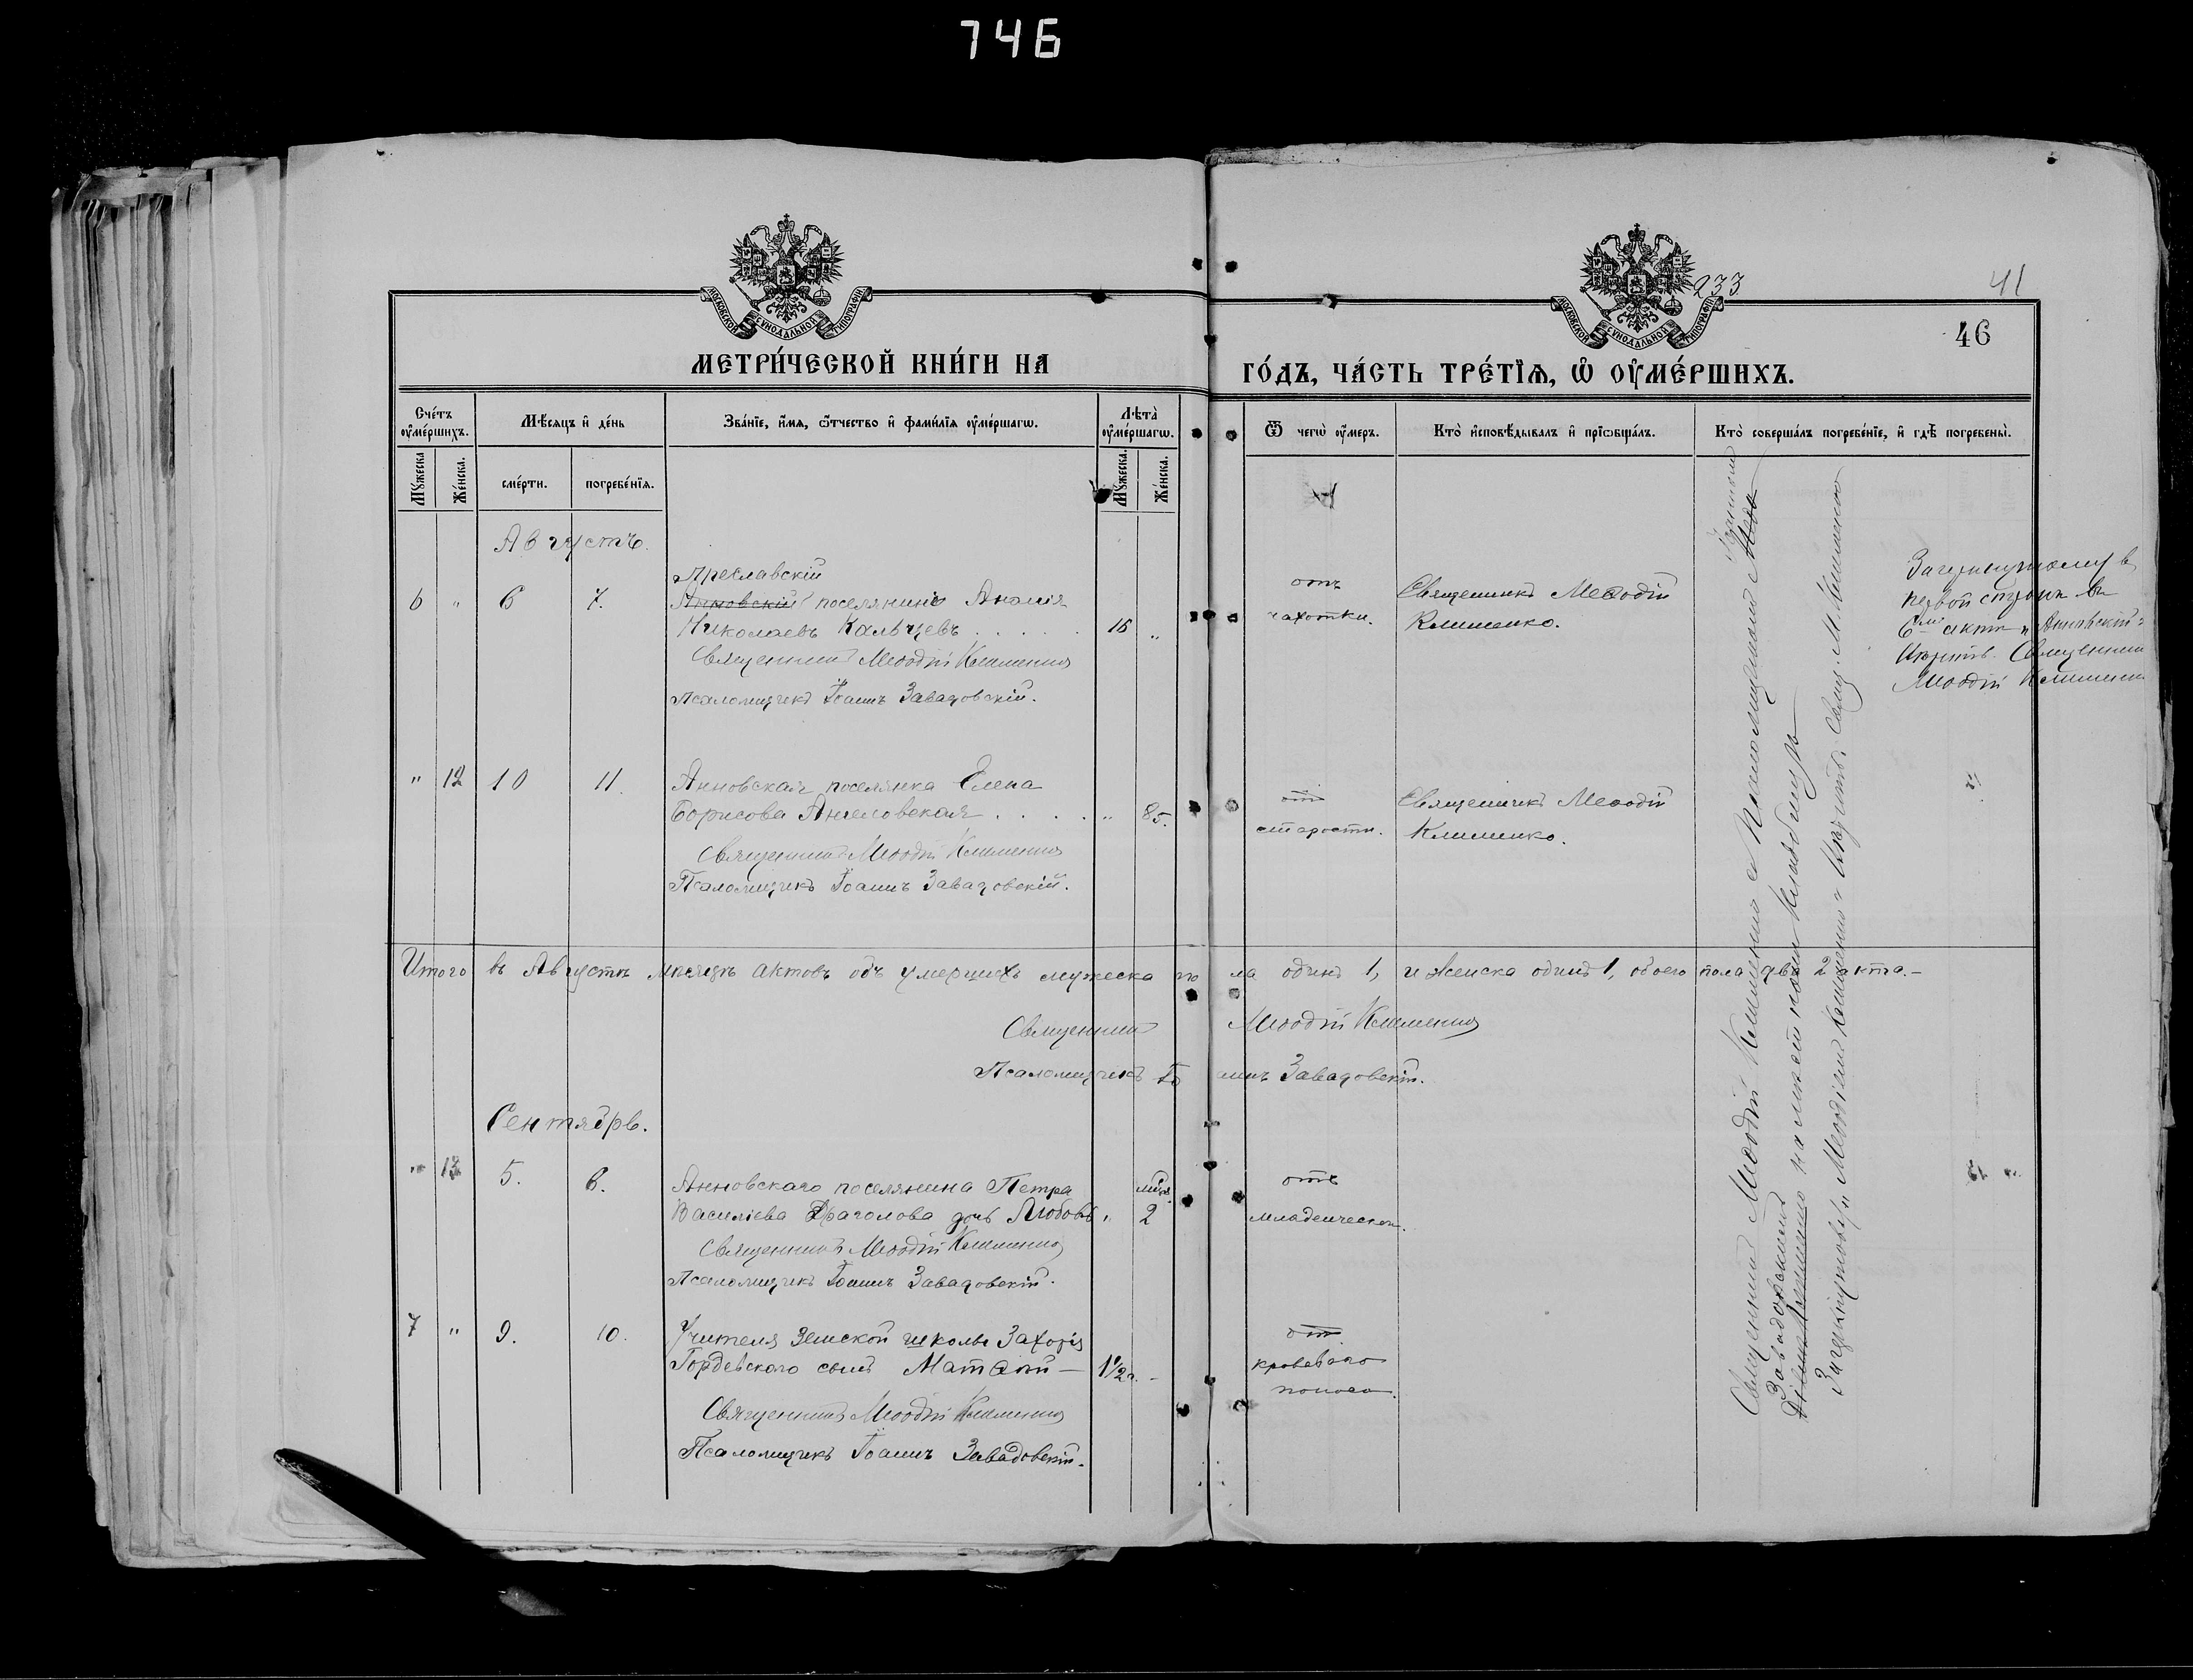 746
233
41
46
МОСКОВСКОЙ СѴНОДАЛЬНОЙ ТИПОГРАФІИ
МОСКОВСКОЙ СѴНОДАЛЬНОЙ ТИПОГРАФІИ
МЕТРИ́ЧЕСКОЙ КНИ́ГИ НА ГО́ДЪ, ЧА́СТЬ ТРЕ́ТЇѦ, Ѡ҆ ОУ҆МЕ́РШИХЪ.
Сче́тъ оу҆ме́ршихъ.
Мѣ́сяцъ и҆ де́нь
Зва́нїе, и҆́мѧ, ѻ҆́тчество и҆ фами́лїѧ оу҆ме́ршагѡ.
Лѣ́та оу҆ме́ршагѡ.
Ѿ чегѡ̀ оу҆́меръ.
Кто̀ и҆сповѣ́дывалъ и҆ прїѡбща́лъ.
Кто̀ соверша́лъ погребе́нїе, и҆ гдѣ̀ погребены̀.
Мꙋ́жеска
Же́нска.
сме́рти.
погребе́нїѧ.
Мꙋ́жеска.
Же́нска.
Августъ.
Преславскій
6 " 6 7. Анновскій поселянинъ Ананія
Николаевъ Кальчевъ . . . . . 16 "
отъ чахотки.
Священникъ Меѳодій
Клименко.
Священникъ Меѳодій Клименко
Псаломщикъ Іоаннъ Завадовскій.
Зачеркнутому въ
первой строкѣ въ
6мъ актѣ "Анновскій"
Священникъ
Меѳодій Клименко
" 12 10 11. Анновская поселянка Елена
Борисова Ангеловская . . . . " 85.
отъ
старости.
Священникъ Меѳодій
Клименко.
Священникъ Меѳодій Клименко
Псаломщикъ Іоаннъ Завадовскій.
Итого въ Августѣ мѣсяцѣ актовъ объ умершихъ мужеска пола одинъ 1, и женска одинъ 1, обоего пола два 2 акта.–
Священникъ Меѳодій Клименко
Псаломщикъ Іоаннъ Завадовскій.
Сентябрь.
" 13 5. 6. Анновскаго поселянина Петра
Василіева Драголова дочь Любовь " 2
отъ
младенческой.
Священникъ Меѳодій Клименко
Псаломщикъ Іоаннъ Завадовскій.
7 " 9. 10. Учителя Земской школы Захарія
Гордевскаго сынъ — 1½ г. -
отъ
кроваваго
поноса.
Священникъ Меѳодій Клименко
Псаломщикъ Іоаннъ Завадовскій.
Священникъ Меѳодій Клименко с Псаломщикомъ
Завадовскимъ на кладбищѣ
Свящ. М. Клименко